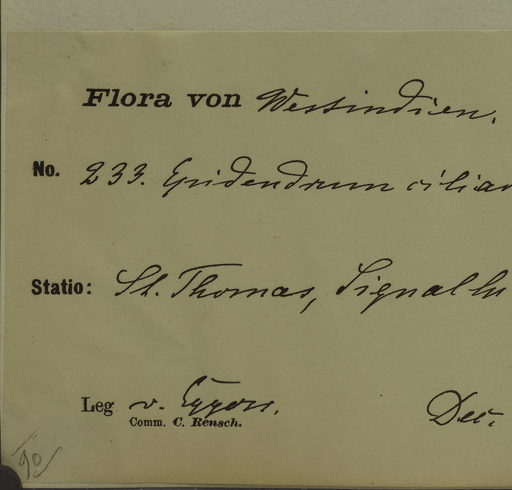 Flora von Westindien.
No. 233. Epidendrum ciliar
Statio: St. Thomas, Signal
Leg v. Eggers. Dec.
Comm. C. Rensch.
90